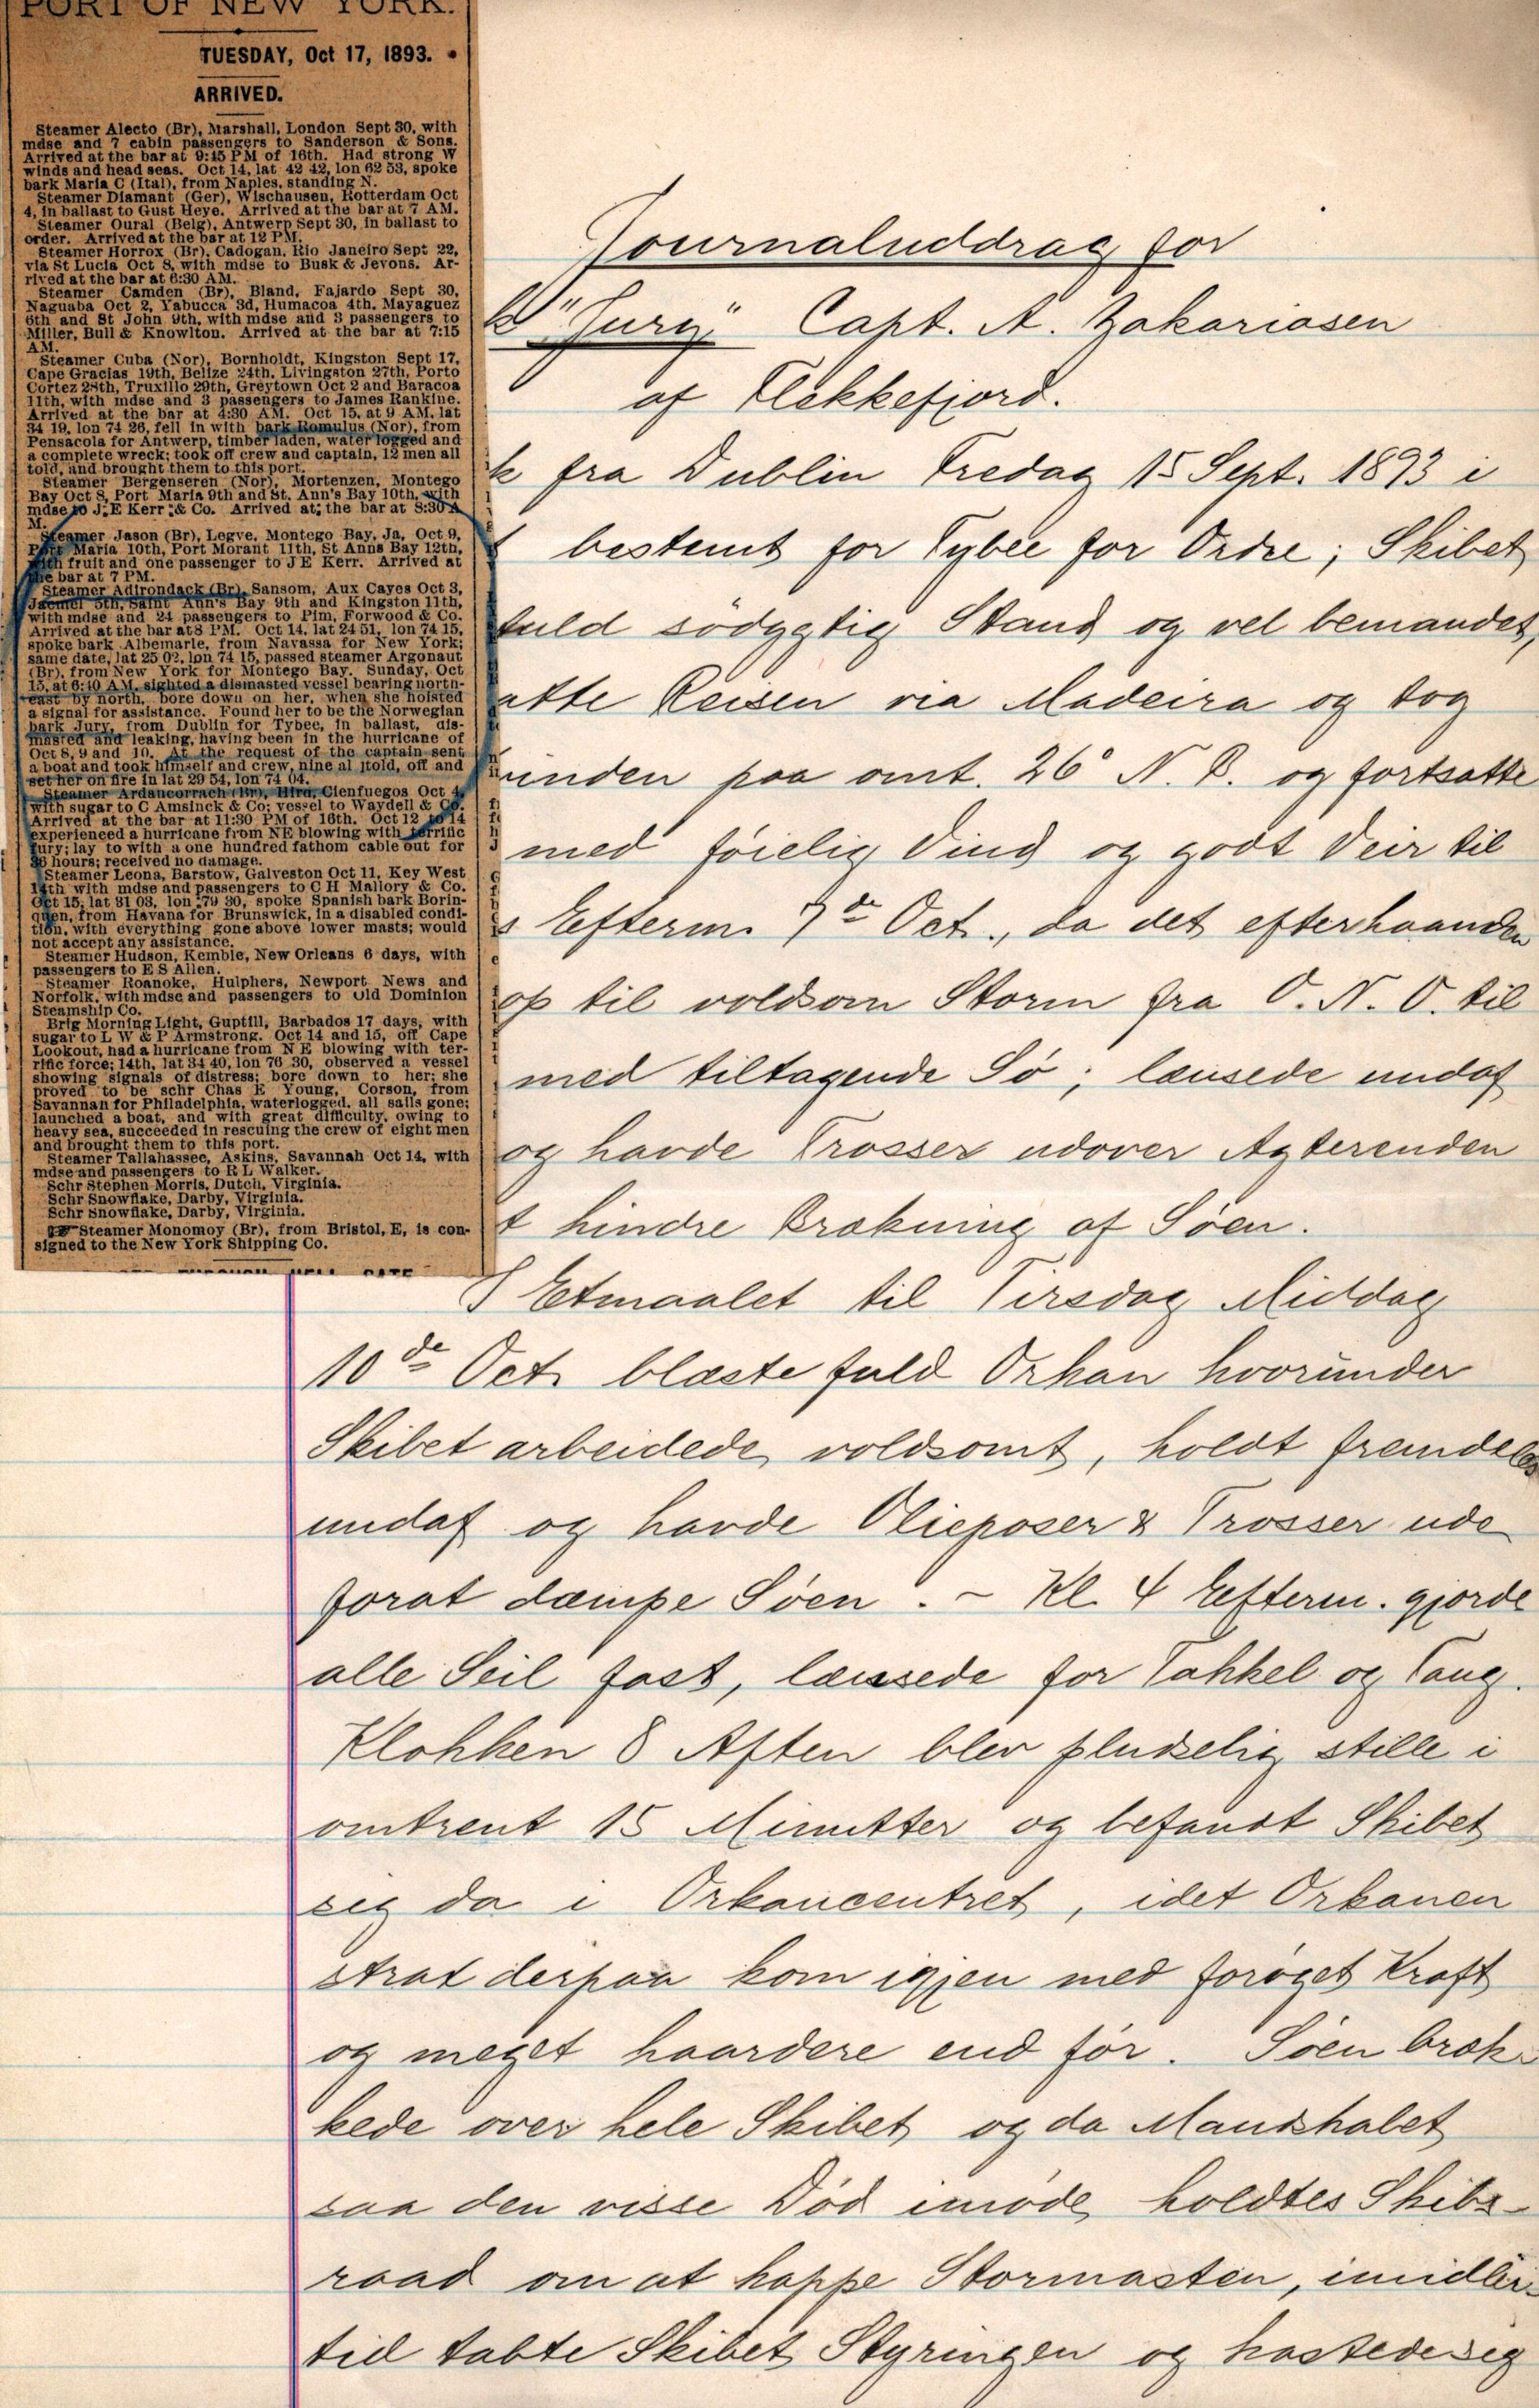 PORT OF NEW YORK.
TUESDAY, Oct 17, 1893.
ARRIVED.
Steamer Alecto (Br), Marshall, London Sept 30, with
mdse and 7 cabin passengers to Sanderson & Sons.
Arrived at the bar at 9:45 PM of 16th. Had strong W
winds and head seas. Oct 14, lat 42 42, lon 62 53, spoke
bark Maria C (Ital), from Naples, standing N.
Steamer Diamant (Ger), Wischausen, Rotterdam Oct
4, in ballast to Gust Heye. Arrived at the bar at 7 AM.
Steamer Oural (Belg), Antwerp Sept 30, in ballast to
order. Arrived at the bar at 12 PM.
Steamer Horrox (Br), Cadogan, Rio Janeiro Sept 22,
via St Lucia Oct 8, with mdse to Busk & Jevons. Ar-
rived at the bar at 6:30 AM.
Steamer Camden (Br), Bland, Fajardo Sept 30,
Naguaba Oct 2, Yabucca 3d, Humacoa 4th, Mayaguez
6th and St John 9th, with mdse and 3 passengers to
Miller, Bull & Knowlton. Arrived at the bar at 7:15
AM.
Steamer Cuba (Nor), Bornholdt, Kingston Sept 17,
Cape Gracias 19th, Belize 24th, Livingston 27th, Porto
Cortez 28th, Truxillo 29th, Greytown Oct 2 and Baracoa
11th, with mdse and 3 passengers to James Rankine.
Arrived at the bar at 4:30 AM. Oct 15, at 9 AM, lat
34 19, lon 74 26, fell in with bark Romulus (Nor), from
Pensacola for Antwerp, timber laden, water logged and
a complete wreck; took off crew and captain, 12 men all
told, and brought them to this port.
Steamer Bergenseren (Nor), Mortenzen, Montego
Bay Oct 8, Port Maria 9th and St. Ann's Bay 10th, with
mdse to J. E Kerr & Co. Arrived at the bar at 8:30 A
M.
Steamer Jason (Br), Legve, Montego Bay, Ja, Oct 9,
Port Maria 10th, Port Morant 11th, St Anns Bay 12th,
with fruit and one passenger to J E Kerr. Arrived at
the bar at 7 PM.
Steamer Adirondack (Br), Sansom, Aux Cayes Oct 3,
Jacmel 5th, Saint Ann's Bay 9th and Kingston 11th,
with mdse and 24 passengers to Pim, Forwood & Co.
Arrived at the bar at 8 PM. Oct 14, lat 24 51, lon 74 15,
spoke bark Albemarle, from Navassa for New York;
same date, lat 25 02, lon 74 15, passed steamer Argonaut
(Br), from New York for Montego Bay. Sunday, Oct
15, at 6:10 AM, sighted a dismasted vessel bearing north-
east by north, bore down on her, when she hoisted
a signal for assistance. Found her to be the Norwegian
bark Jury, from Dublin for Tybee, in ballast, dis-
masted and leaking, having been in the hurricane of
Oct 8, 9 and 10. At the request of the captain sent
a boat and took himself and crew, nine al ltold, off and
set her on fire in lat 29 54, lon 74 04.
Steamer Ardancorrach (Br), Hird, Cienfuegos Oct 4,
with sugar to C Amsinck & Co; vessel to Waydell & Co.
Arrived at the bar at 11:30 PM of 16th. Oct 12 to 14
experienced a hurricane from NE blowing with terrific
fury; lay to with a one hundred fathom cable out for
36 hours; received no damage.
Steamer Leona, Barstow, Galveston Oct 11, Key West
14th with mdse and passengers to C H Mallory & Co.
Oct 15, lat 31 03, lon 79 30, spoke Spanish bark Borin-
quen, from Havana for Brunswick, in a disabled condi-
tion, with everything gone above lower masts; would
not accept any assistance.
Steamer Hudson, Kemble, New Orleans 6 days, with
passengers to E S Allen.
Steamer Roanoke, Hulphers, Newport News and
Norfolk, with mdse and passengers to Old Dominion
Steamship Co.
Brig Morning Light, Guptill, Barbados 17 days, with
sugar to L W & P Armstrong. Oct 14 and 15, off Cape
Lookout, had a hurricane from N E blowing with ter-
rific force; 14th, lat 34 40, lon 76 30, observed a vessel
showing signals of distress; bore down to her; she
proved to be schr Chas E Young, Corson, from
Savannah for Philadelphia, waterlogged, all sails gone;
launched a boat, and with great difficulty, owing to
heavy sea, succeeded in rescuing the crew of eight men
and brought them to this port.
Steamer Tallahassee, Askins, Savannah Oct 14, with
mdse and passengers to R L Walker.
Schr Stephen Morris, Dutch, Virginia.
Schr Snowflake, Darby, Virginia.
Schr Snowflake, Darby, Virginia.
Steamer Monomoy (Br), from Bristol, E, is con-
signed to the New York Shipping Co.
Journaluddrag for
k "Jury" Capt. A. Zakariasen
af Flekkefjord.
k fra Dublin Fredag 15 Sept. 1893 i
t bestemt for Tybee for Ordre; Skibet
fuld sødygtig Stand og vel bemandet,
atte Reisen via Madeira og tog
inden paa omt. 26° N. B. og fortsatte
med føielig Vind og godt Veir til
s Efterm. 7de Oct., da det efterhaanden
op til voldsom Storm fra O. N. O. til
med tiltagende Sø; lænsede undaf
og havde Trosser udover Agterenden
t hindre Brækning af Søen.
I Etmaalet til Tirsdag Middag
10de Oct. blæste fuld Orkan hvorunder
Skibet arbeidede voldsomt, holdt fremdeles
undaf og havde Olieposer & Trosser ude
forat dæmpe Søen. - Kl. 4 Efterm. gjorde
alle Seil fast, lænsede for Takkel og Taug.
Klokken 8 Aften blev pludselig stille i
omtrent 15 Minutter og befandt Skibet
sig da i Orkancentret, idet Orkanen
strax derpaa kom igjen med forøget Kraft
og meget haardere end før. Søen bræk-
kede over hele Skibet og da Mandskabet
saa den visse Død imøde, holdtes Skibs-
raad om at kappe Stormasten, imidler-
tid tabte Skibet Styringen og kastede sig